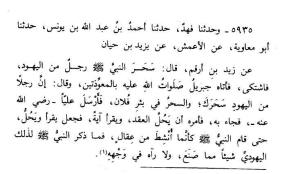 ٥٩٣٥ - وحدثنا فهدٌ، حدثنا أحمدُ بنُ عبد الله بن يونس، حدثنا
أبو معاوية، عن الأعمش، عن يزيد بن حيان
عن زيد بن أرقم، قال: سَحَرَ النبيَّ ﷺ رجلٌ من اليهود،
فاشتكى، فأتاه جبريلُ صَلَواتُ اللهِ عليه بالمعوِّذتين، وقال: إنَّ رجلًا
من اليهودِ سَحَرَكَ؛ والسحرُ في بئرِ فلان، فأَرْسَلَ عليًّا ــ رضي الله
عنه ــ، فجاء به، فأمره أن يَحُلَّ العقد، ويقرأَ آيةً، فجعل يقرأُ ويَحُلُّ،
حتى قام النبي ﷺ كأنما أُنْشِطَ من عِقالٍ، فما ذكر النبي ﷺ لذلك
اليهوديِّ شيئًا مما صَنَعَ، ولا رآه في وَجْهِهِ(١).